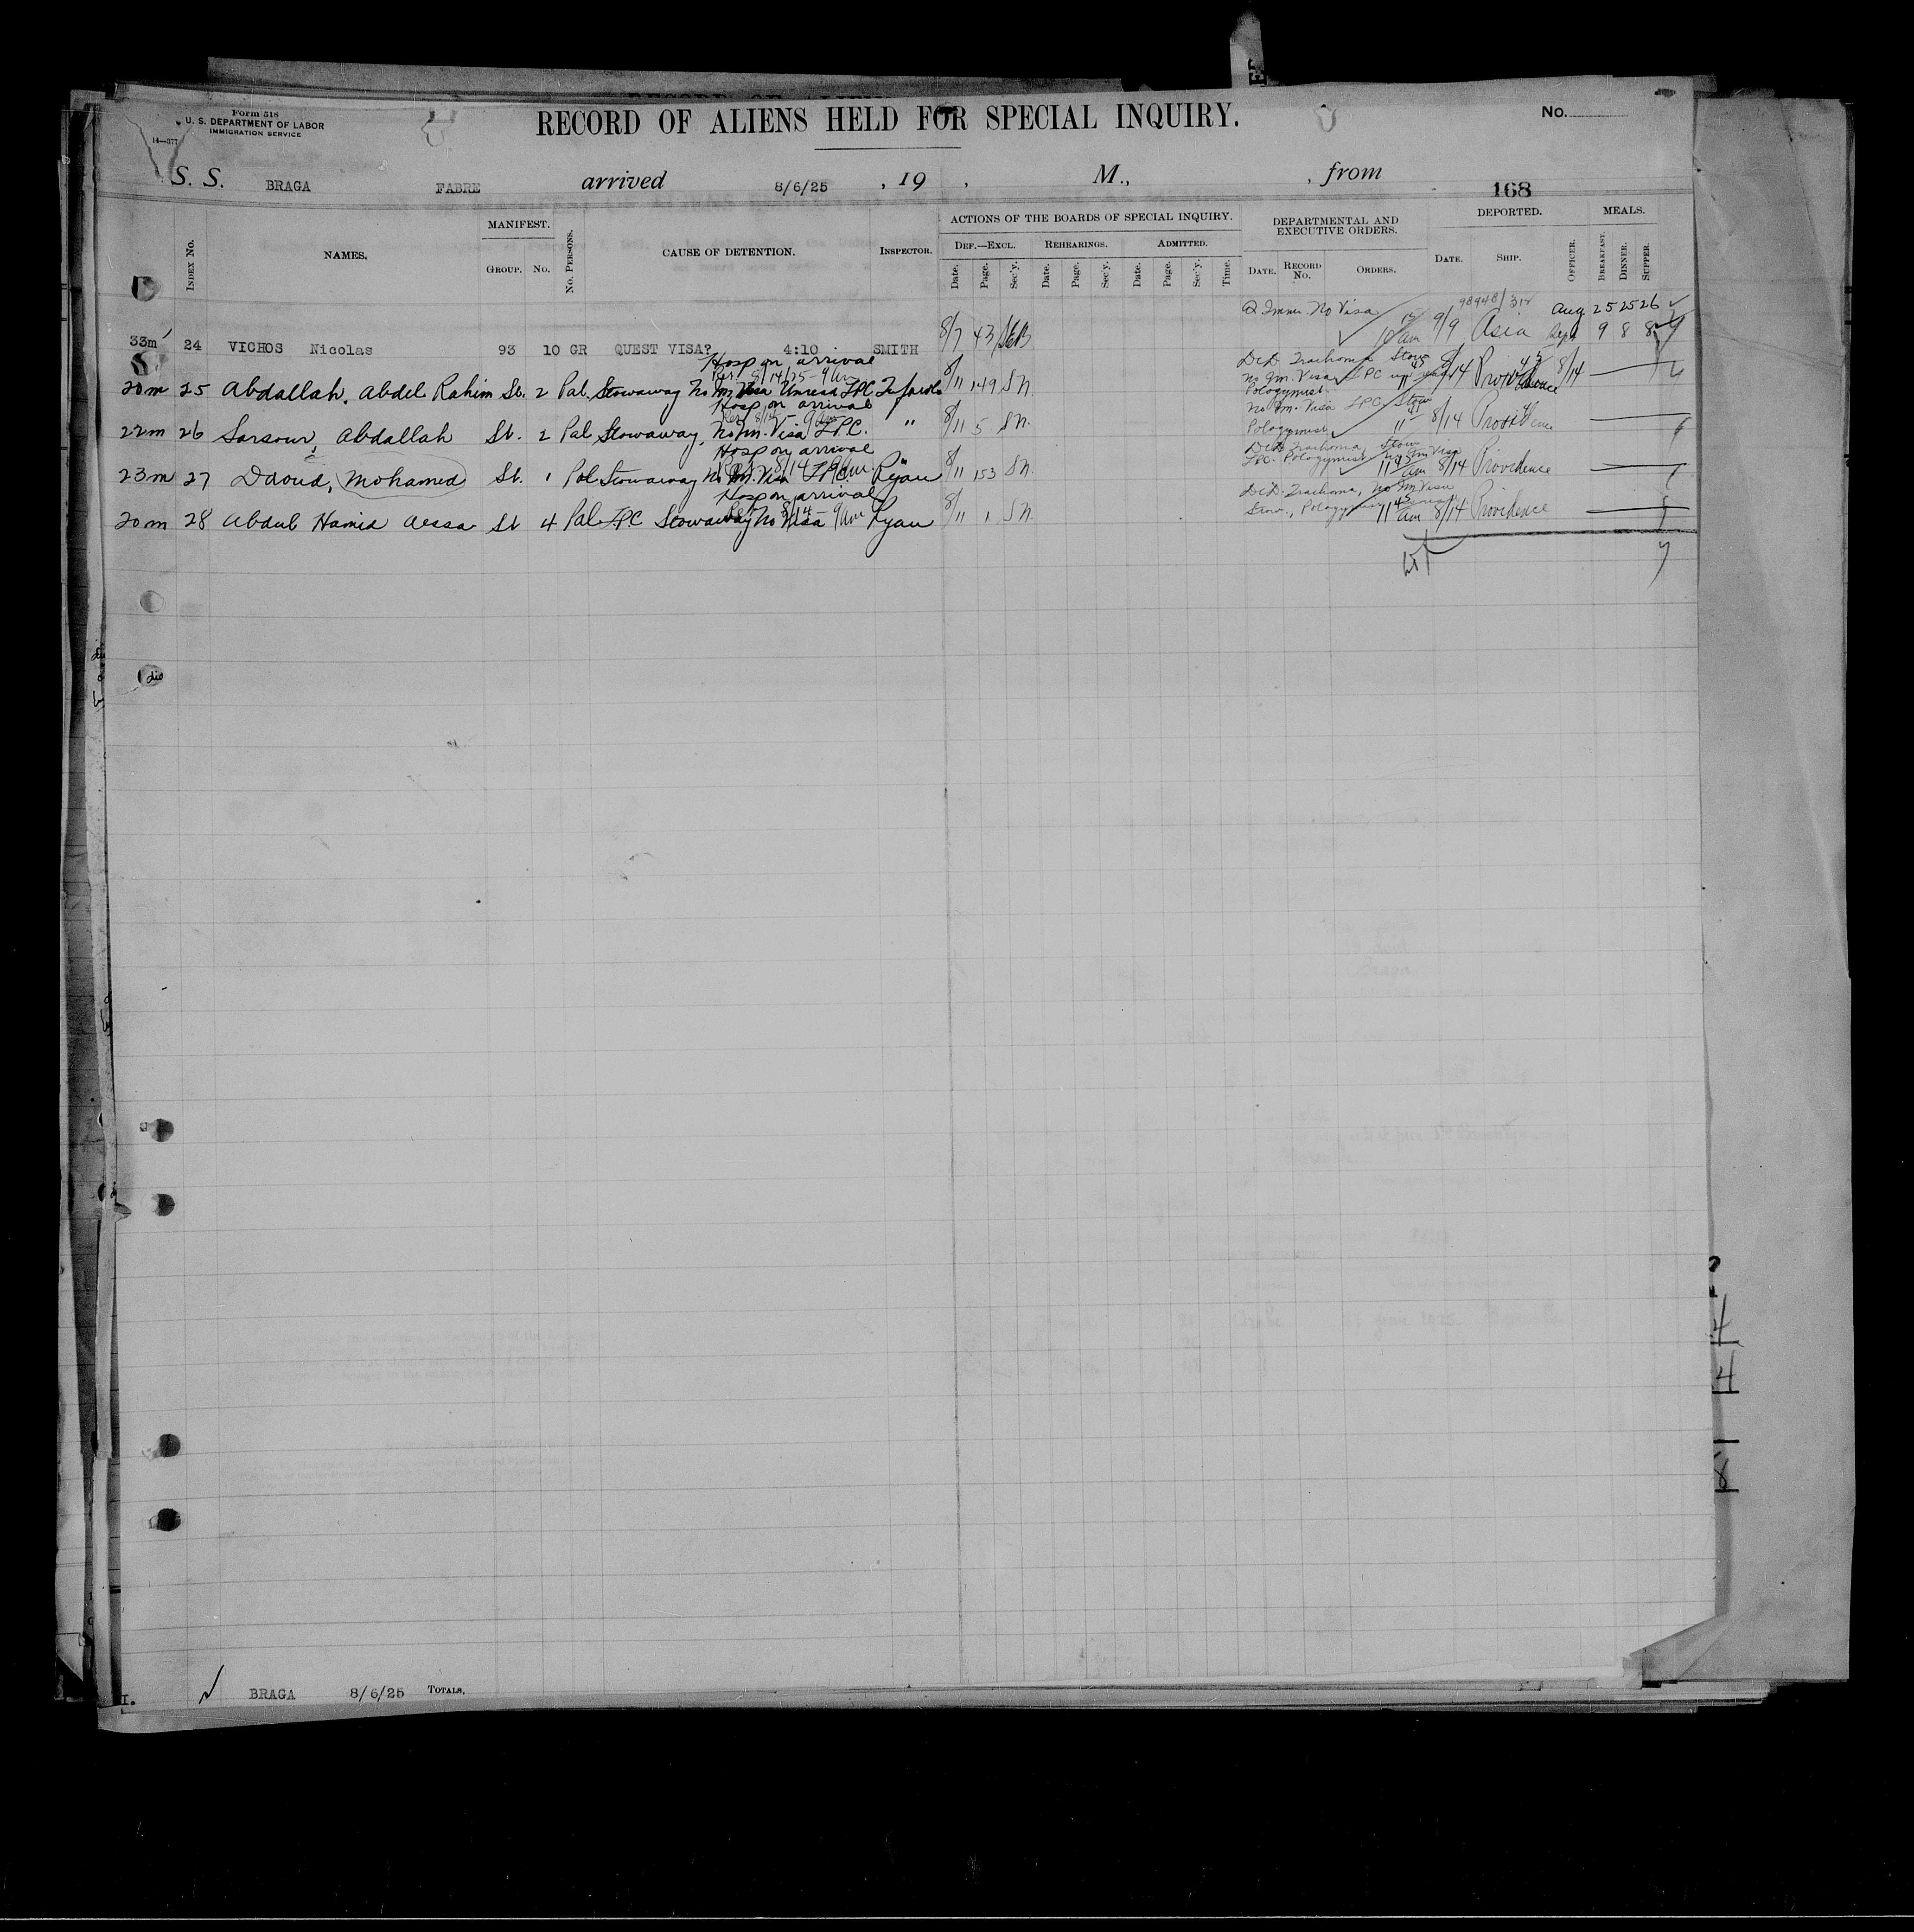 Form 518
U. S. DEPARTMENT OF LABOR
IMMIGRATION SERVICE
14—377
RECORD OF ALIENS HELD FOR SPECIAL INQUIRY.
No.
S. S. BRAGA FABRE arrived 8/6/25 , 19 , M., , from
168
MANIFEST. ACTIONS OF THE BOARDS OF SPECIAL INQUIRY. DEPARTMENTAL AND EXECUTIVE ORDERS. DEPORTED. MEALS.
INDEX No. NAMES. GROUP. No. No. PERSONS. CAUSE OF DETENTION. INSPECTOR. DEF.—EXCL. REHEARINGS. ADMITTED.
Date. Page. Sec'y. Date. Page. Sec'y. Date. Page. Sec'y. Time. DATE. RECORD No. ORDERS. DATE. SHIP. OFFICER. BREAKFAST. DINNER. SUPPER.
Q Immi. No Visa 98948/312 Aug 25 25 26
33m 24 VICHOS Nicolas 93 10 GR QUEST VISA? 4:10 SMITH 8/7 43 10 15 am 9/9 Asia Sept 9 8 8
Hosp on arrival
DcD Trachoma Stow
No Im. Visa LPC
20m 25 Abdallah, Abdel Rahim St. 2 Pal Stowaway No Im Visa LPC 8/11 149 SN. Pologymist 8/14 Providence 8/14
Hosp on arrival
No Im. Visa LPC Stow
22m 26 Sarsour, Abdallah St. 2 Pal Stowaway, No Im. Visa LPC. " 8/11 5 SN. Pologymist 11 45 8/14 Providence
Hosp on arrival
DcD Trachoma, Stow
LPC. Pologymist No Im Visa
23m 27 Daoud, Mohamed St. 1 Pal Stowaway No Im. Visa LPC. Ryan 8/11 153 SN. 11 45 am 8/14 Providence
Hosp on arrival
DcD. Trachoma, No Im Visa
20m 28 Abdul Hamid Aessa St 4 Pal LPC Stowaway No Visa 9 am Ryan 8/11 1 SN. Stow., 11 45 am 8/14 Providence
BRAGA 8/6/25 TOTALS,